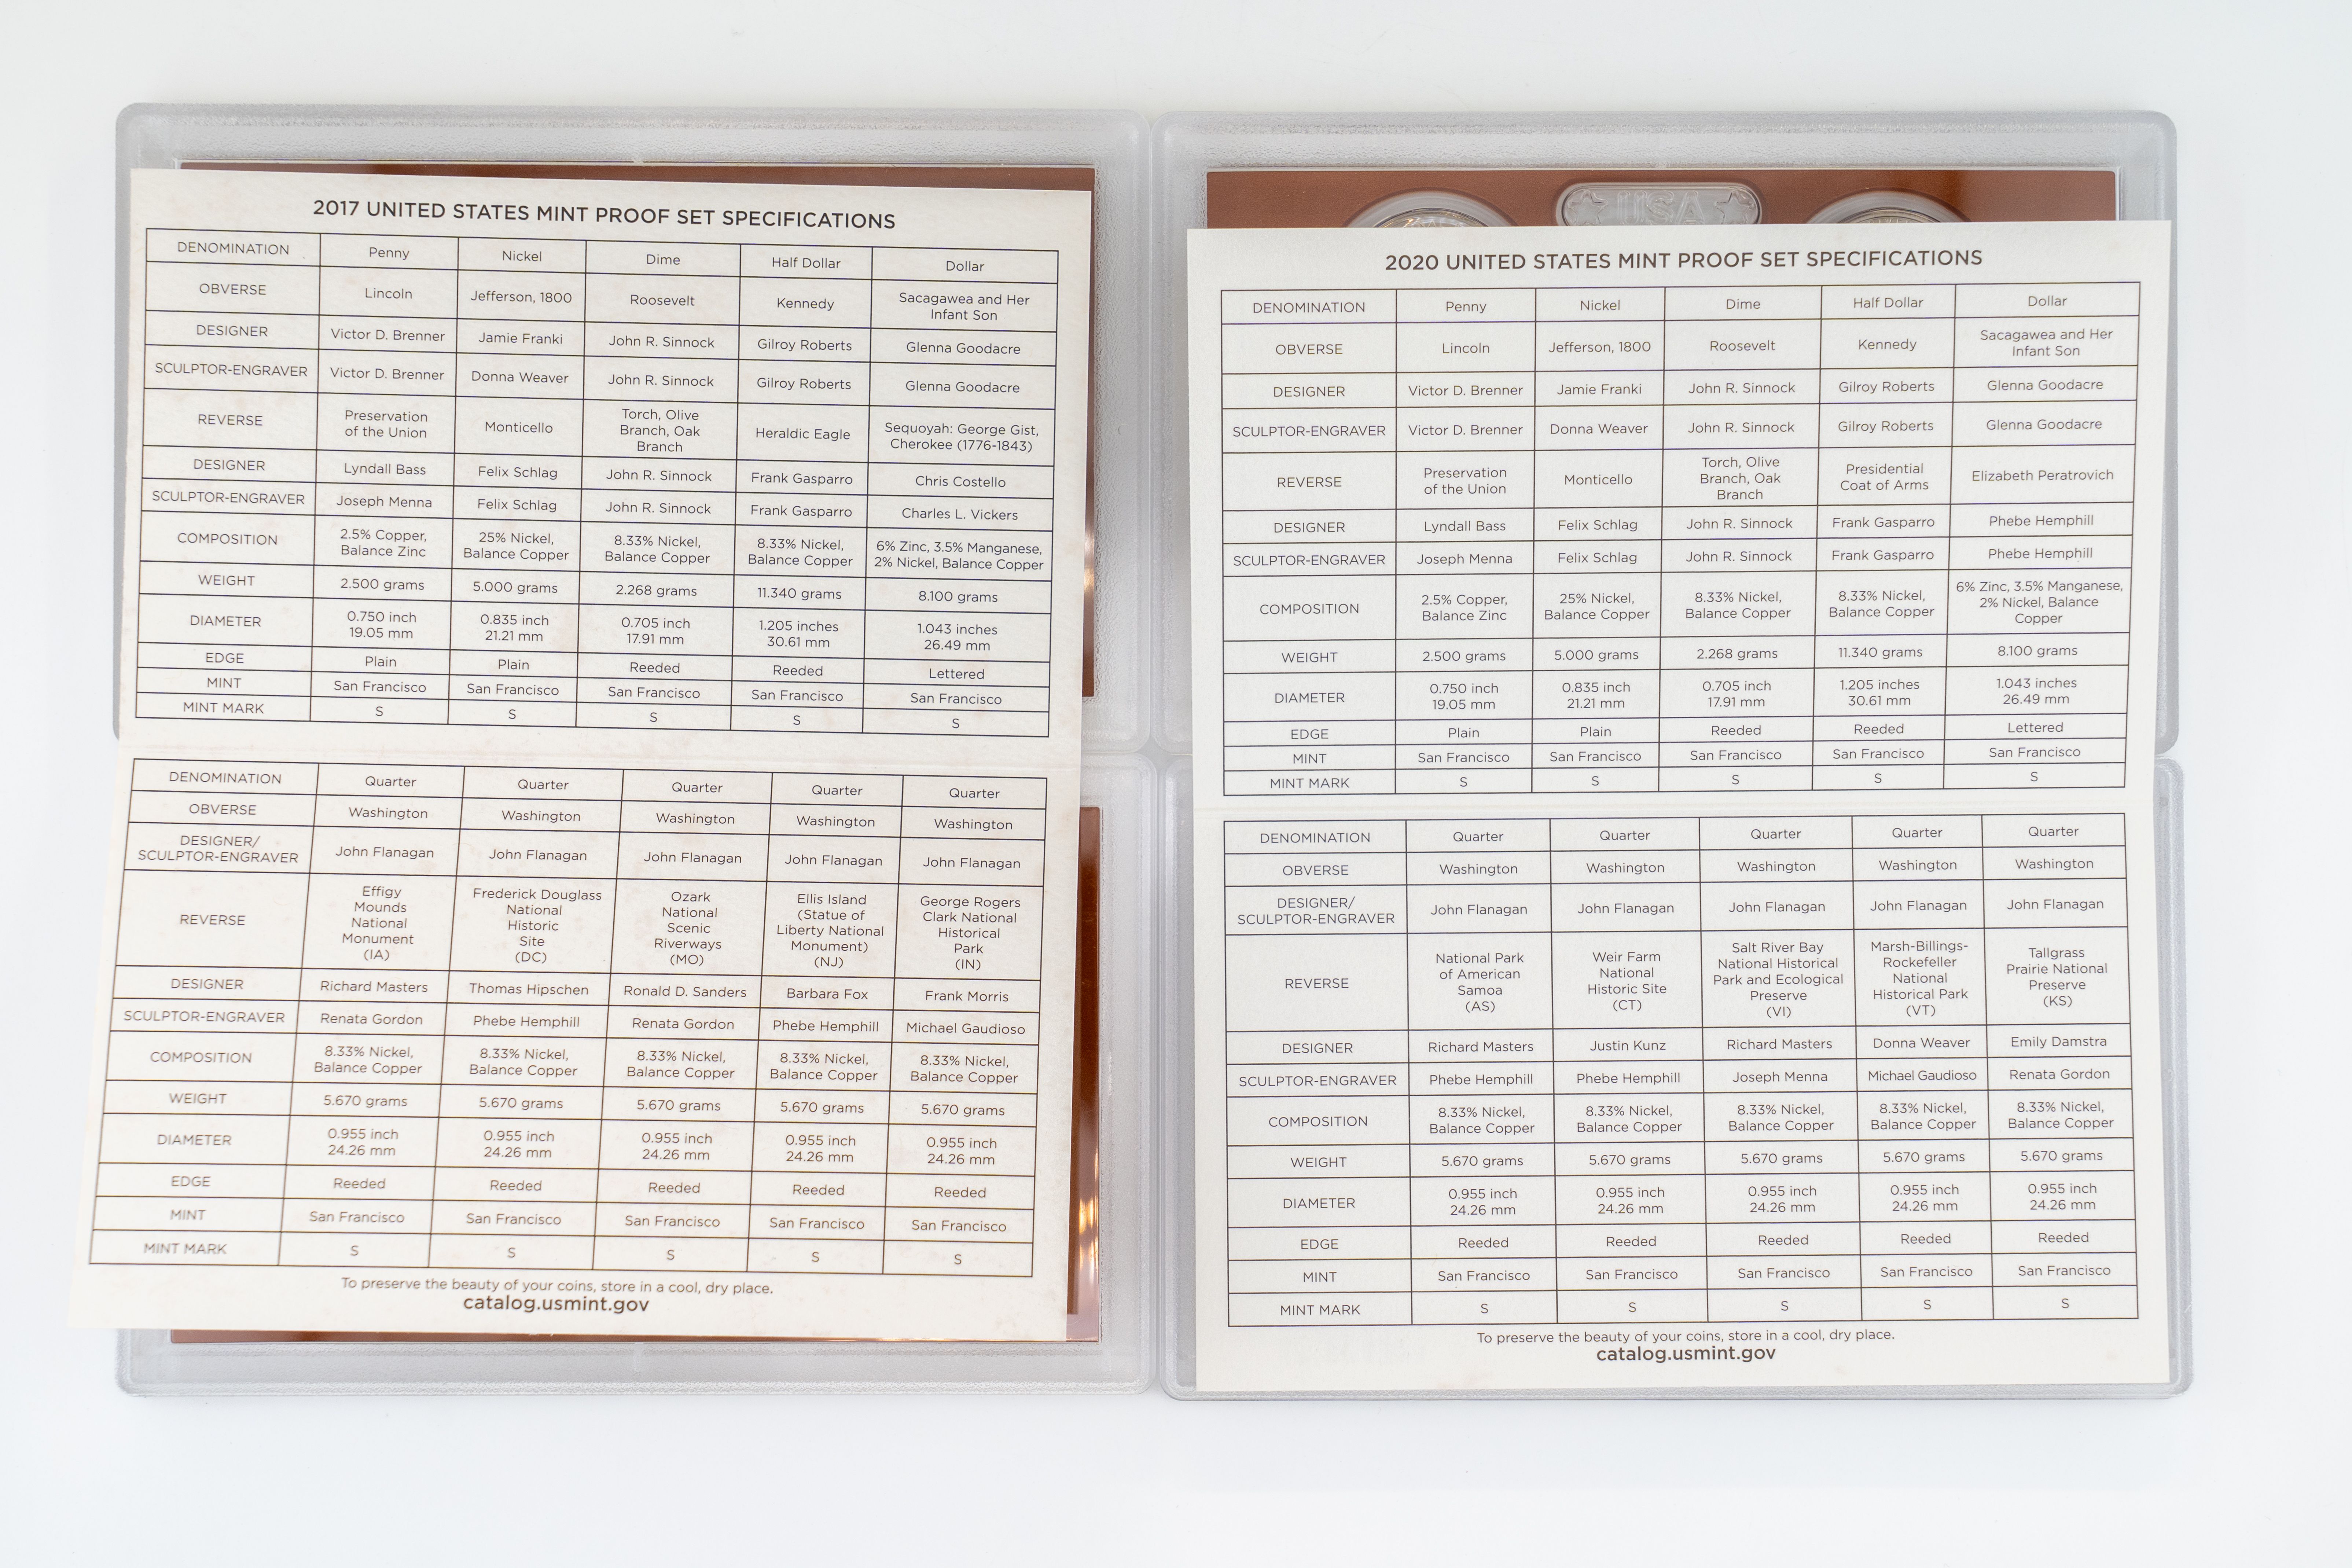 2017 UNITED STATES MINT PROOF SET SPECIFICATIONS
DENOMINATION Penny Nickel Dime Half Dollar Dollar
OBVERSE Lincoln Jefferson, 1800 Roosevelt Kennedy Sacagawea and Her
Infant Son
DESIGNER Victor D. Brenner Jamie Franki John R. Sinnock Gilroy Roberts Glenna Goodacre
SCULPTOR-ENGRAVER Victor D. Brenner Donna Weaver John R. Sinnock Gilroy Roberts Glenna Goodacre
REVERSE Preservation Monticello Torch, Olive Heraldic Eagle Sequoyah: George Gist,
of the Union Branch, Oak Cherokee (1776-1843)
Branch
DESIGNER Lyndall Bass Felix Schlag John R. Sinnock Frank Gasparro Chris Costello
SCULPTOR-ENGRAVER Joseph Menna Felix Schlag John R. Sinnock Frank Gasparro Charles L. Vickers
COMPOSITION 2.5% Copper, 25% Nickel, 8.33% Nickel, 8.33% Nickel, 6% Zinc, 3.5% Manganese,
Balance Zinc Balance Copper Balance Copper Balance Copper 2% Nickel, Balance Copper
WEIGHT 2.500 grams 5.000 grams 2.268 grams 11.340 grams 8.100 grams
DIAMETER 0.750 inch 0.835 inch 0.705 inch 1.205 inches 1.043 inches
19.05 mm 21.21 mm 17.91 mm 30.61 mm 26.49 mm
EDGE Plain Plain Reeded Reeded Lettered
MINT San Francisco San Francisco San Francisco San Francisco San Francisco
MINT MARK S S S S S
DENOMINATION Quarter Quarter Quarter Quarter Quarter
OBVERSE Washington Washington Washington Washington Washington
DESIGNER/
SCULPTOR-ENGRAVER John Flanagan John Flanagan John Flanagan John Flanagan John Flanagan
REVERSE Effigy Frederick Douglass Ozark Ellis Island George Rogers
Mounds National National (Statue of Clark National
National Historic Scenic Liberty National Historical
Monument Site Riverways Monument) Park
(IA) (DC) (MO) (NJ) (IN)
DESIGNER Richard Masters Thomas Hipschen Ronald D. Sanders Barbara Fox Frank Morris
SCULPTOR-ENGRAVER Renata Gordon Phebe Hemphill Renata Gordon Phebe Hemphill Michael Gaudioso
COMPOSITION 8.33% Nickel, 8.33% Nickel, 8.33% Nickel, 8.33% Nickel, 8.33% Nickel,
Balance Copper Balance Copper Balance Copper Balance Copper Balance Copper
WEIGHT 5.670 grams 5.670 grams 5.670 grams 5.670 grams 5.670 grams
DIAMETER 0.955 inch 0.955 inch 0.955 inch 0.955 inch 0.955 inch
24.26 mm 24.26 mm 24.26 mm 24.26 mm 24.26 mm
EDGE Reeded Reeded Reeded Reeded Reeded
MINT San Francisco San Francisco San Francisco San Francisco San Francisco
MINT MARK S S S S S
To preserve the beauty of your coins, store in a cool, dry place.
catalog.usmint.gov
USA
2020 UNITED STATES MINT PROOF SET SPECIFICATIONS
DENOMINATION Penny Nickel Dime Half Dollar Dollar
OBVERSE Lincoln Jefferson, 1800 Roosevelt Kennedy Sacagawea and Her
Infant Son
DESIGNER Victor D. Brenner Jamie Franki John R. Sinnock Gilroy Roberts Glenna Goodacre
SCULPTOR-ENGRAVER Victor D. Brenner Donna Weaver John R. Sinnock Gilroy Roberts Glenna Goodacre
REVERSE Preservation Monticello Torch, Olive Presidential Elizabeth Peratrovich
of the Union Branch, Oak Coat of Arms
Branch
DESIGNER Lyndall Bass Felix Schlag John R. Sinnock Frank Gasparro Phebe Hemphill
SCULPTOR-ENGRAVER Joseph Menna Felix Schlag John R. Sinnock Frank Gasparro Phebe Hemphill
COMPOSITION 2.5% Copper, 25% Nickel, 8.33% Nickel, 8.33% Nickel, 6% Zinc, 3.5% Manganese,
Balance Zinc Balance Copper Balance Copper Balance Copper 2% Nickel, Balance
Copper
WEIGHT 2.500 grams 5.000 grams 2.268 grams 11.340 grams 8.100 grams
DIAMETER 0.750 inch 0.835 inch 0.705 inch 1.205 inches 1.043 inches
19.05 mm 21.21 mm 17.91 mm 30.61 mm 26.49 mm
EDGE Plain Plain Reeded Reeded Lettered
MINT San Francisco San Francisco San Francisco San Francisco San Francisco
MINT MARK S S S S S
DENOMINATION Quarter Quarter Quarter Quarter Quarter
OBVERSE Washington Washington Washington Washington Washington
DESIGNER/
SCULPTOR-ENGRAVER John Flanagan John Flanagan John Flanagan John Flanagan John Flanagan
REVERSE National Park Weir Farm Salt River Bay Marsh-Billings- Tallgrass
of American National National Historical Rockefeller Prairie National
Samoa Historic Site Park and Ecological National Preserve
(AS) (CT) Preserve Historical Park (KS)
(VI) (VT)
DESIGNER Richard Masters Justin Kunz Richard Masters Donna Weaver Emily Damstra
SCULPTOR-ENGRAVER Phebe Hemphill Phebe Hemphill Joseph Menna Michael Gaudioso Renata Gordon
COMPOSITION 8.33% Nickel, 8.33% Nickel, 8.33% Nickel, 8.33% Nickel, 8.33% Nickel,
Balance Copper Balance Copper Balance Copper Balance Copper Balance Copper
WEIGHT 5.670 grams 5.670 grams 5.670 grams 5.670 grams 5.670 grams
DIAMETER 0.955 inch 0.955 inch 0.955 inch 0.955 inch 0.955 inch
24.26 mm 24.26 mm 24.26 mm 24.26 mm 24.26 mm
EDGE Reeded Reeded Reeded Reeded Reeded
MINT San Francisco San Francisco San Francisco San Francisco San Francisco
MINT MARK S S S S S
To preserve the beauty of your coins, store in a cool, dry place.
catalog.usmint.gov